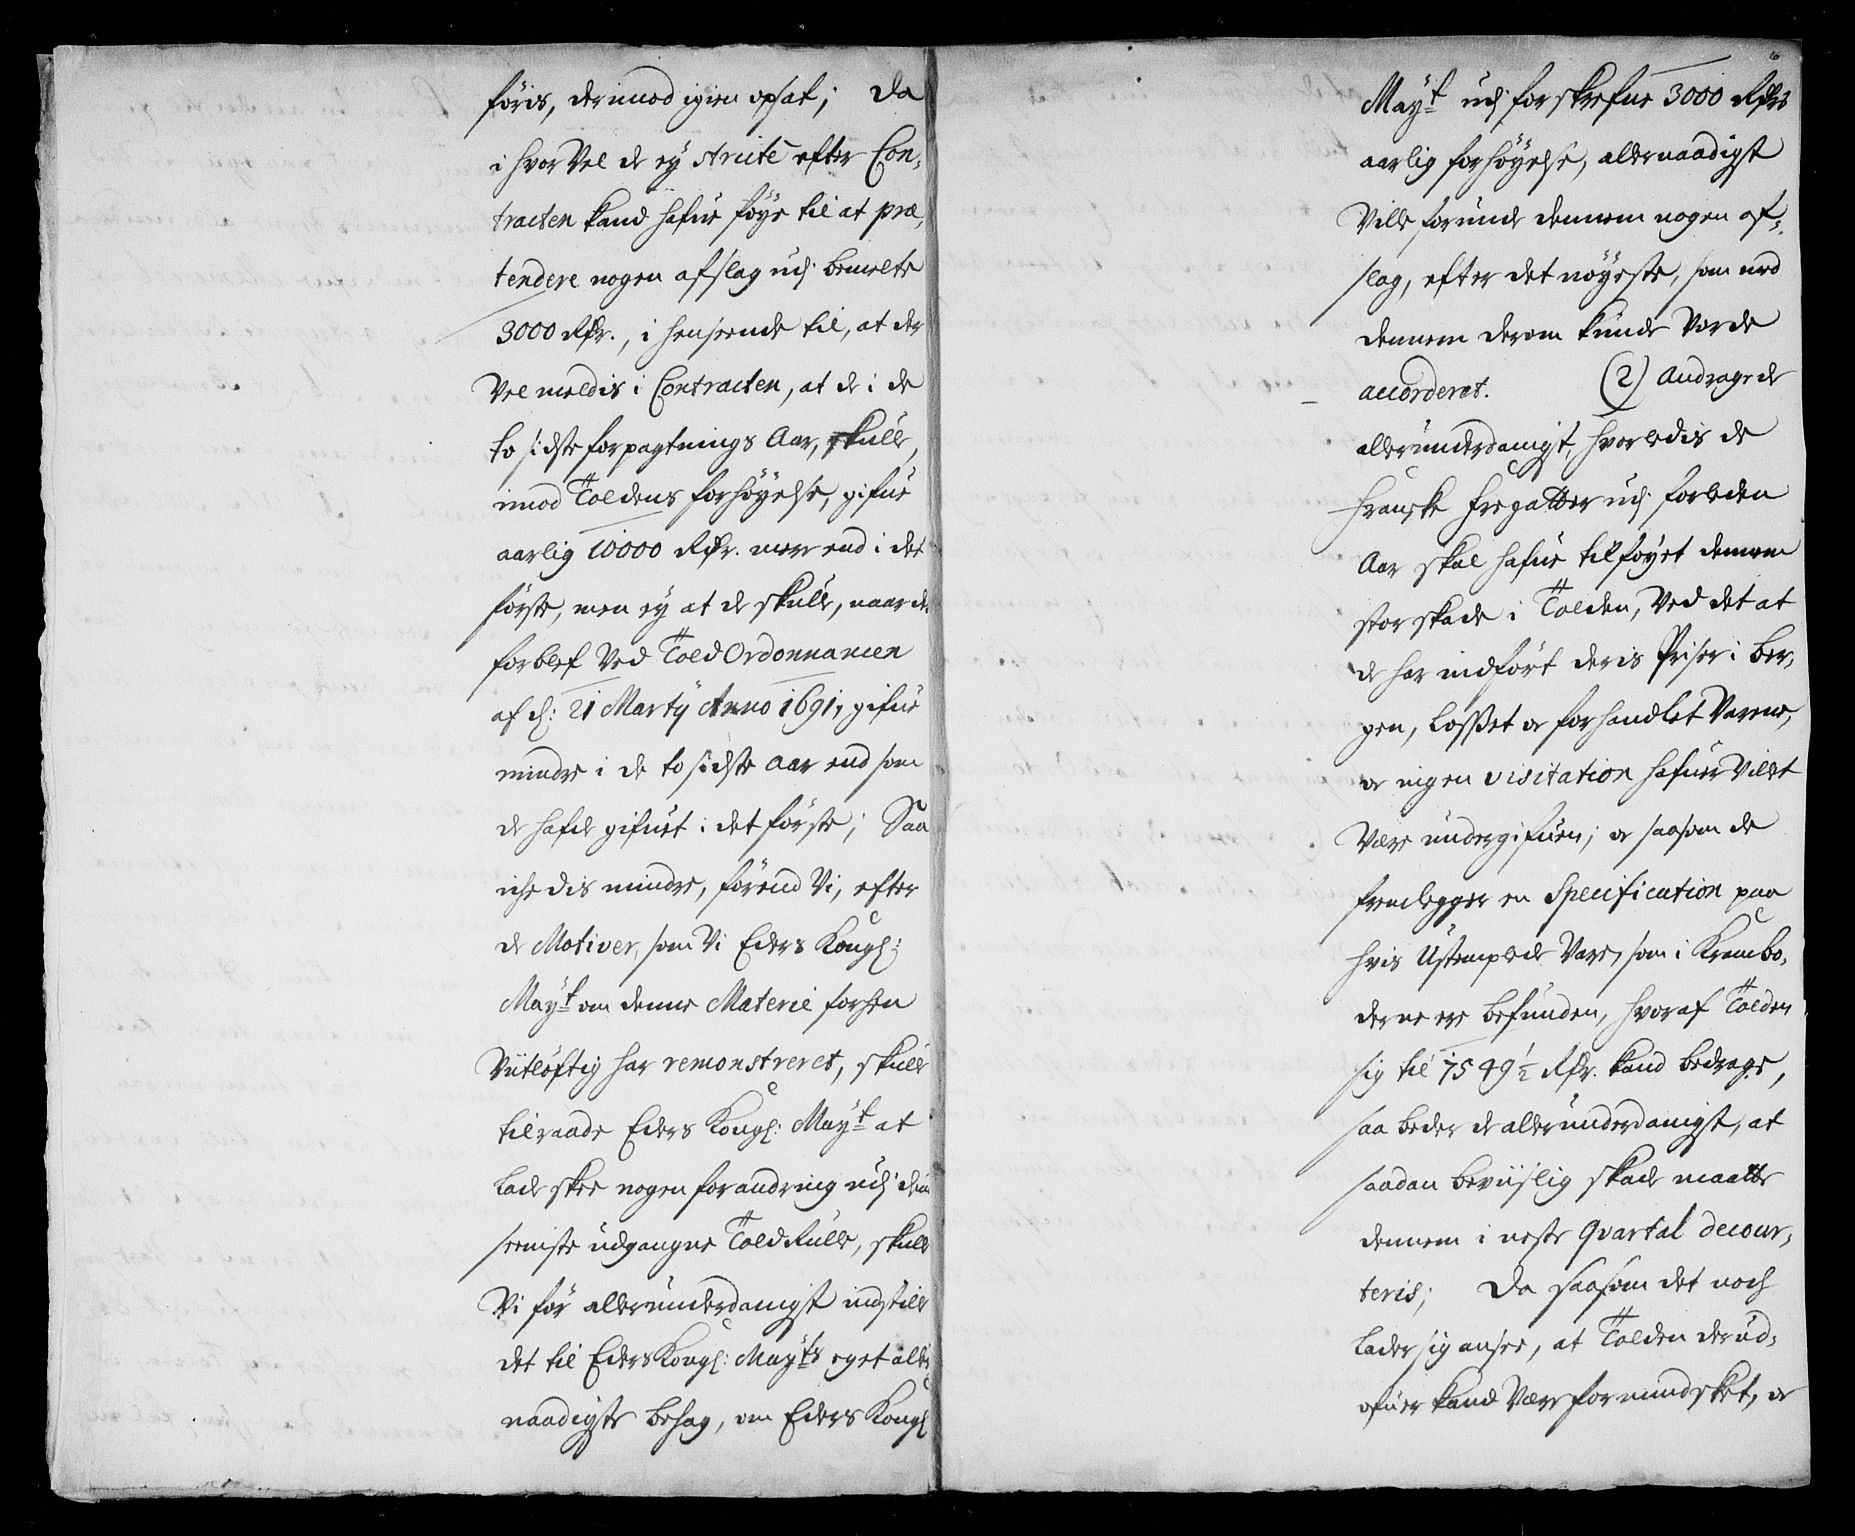 föris, derimod igien opsat; Da
i hvor Vel de ey stricté efter Con-
tracten kand hafue föye til at præ,
tendere nogen afslag udj bemelte
3000 Rdr., i henseende til, at der
Vel meldis i Contracten, at de i de
to sidste forpagtnings Aar, skulle,
imod Toldens forhöyelse, gifue
aarlig 10000 Rdr. mere end i det
förste, men ey at de skulle, naar de
forblef Ved Told Ordonnancen
af d: 21 Martij Anno 1691, gifue
mindre i de to sidste Aar end som
de hafde gifuet i det förste; Saa
iche dis mindre, förend Vi, efter
de Motiver, som Vi Eders Kongl:
Mayt om denne Materie forhen
Viitlöftig har remonstreret, skulle
tilraade Eders Kongl: Mayt at
lade skee nogen forandring udj den
seeniste udgangne Told Rulle, skulle
Vi för allerunderdanigst indstille
det til Eders Kongl: Mayts eget aller,
naadigste behag, om Eders Kongl
Mayt udj forskrefne 3000 Rdrs
aarlig forhöyelse, allernaadigst
Ville forunde dennem nogen af-
slag, efter det nöyeste, som med
dennem derom kunde Vorde
accorderet. (2) Andragede
allerunderdanigst, hvorledis de
Franske Fregatter udj forleden
Aar skal hafue tilföyet dennem
stor skade i Tolden, Ved det at
de har indfört deris Priser i Ber,
gen, losset oc forhandlet Varene,
oc ingen visitation hafuer Villet
Være undergifuen; oc saasom de
fremlegger en Specification paa
hvis Ustemplede Vare, som i Krambo,
derne ere befunden, hvoraf Tolden
sig til 7549½ Rdr. kand bedrage,
saa beder de allerunderdanigst, at
saadan beviislig skade maatte
dennem i neste Qvartal decour,
teris; Da saasom det noch
lader sig ansee, at Tolden derud-
ofuer kand Være formindsket, oc